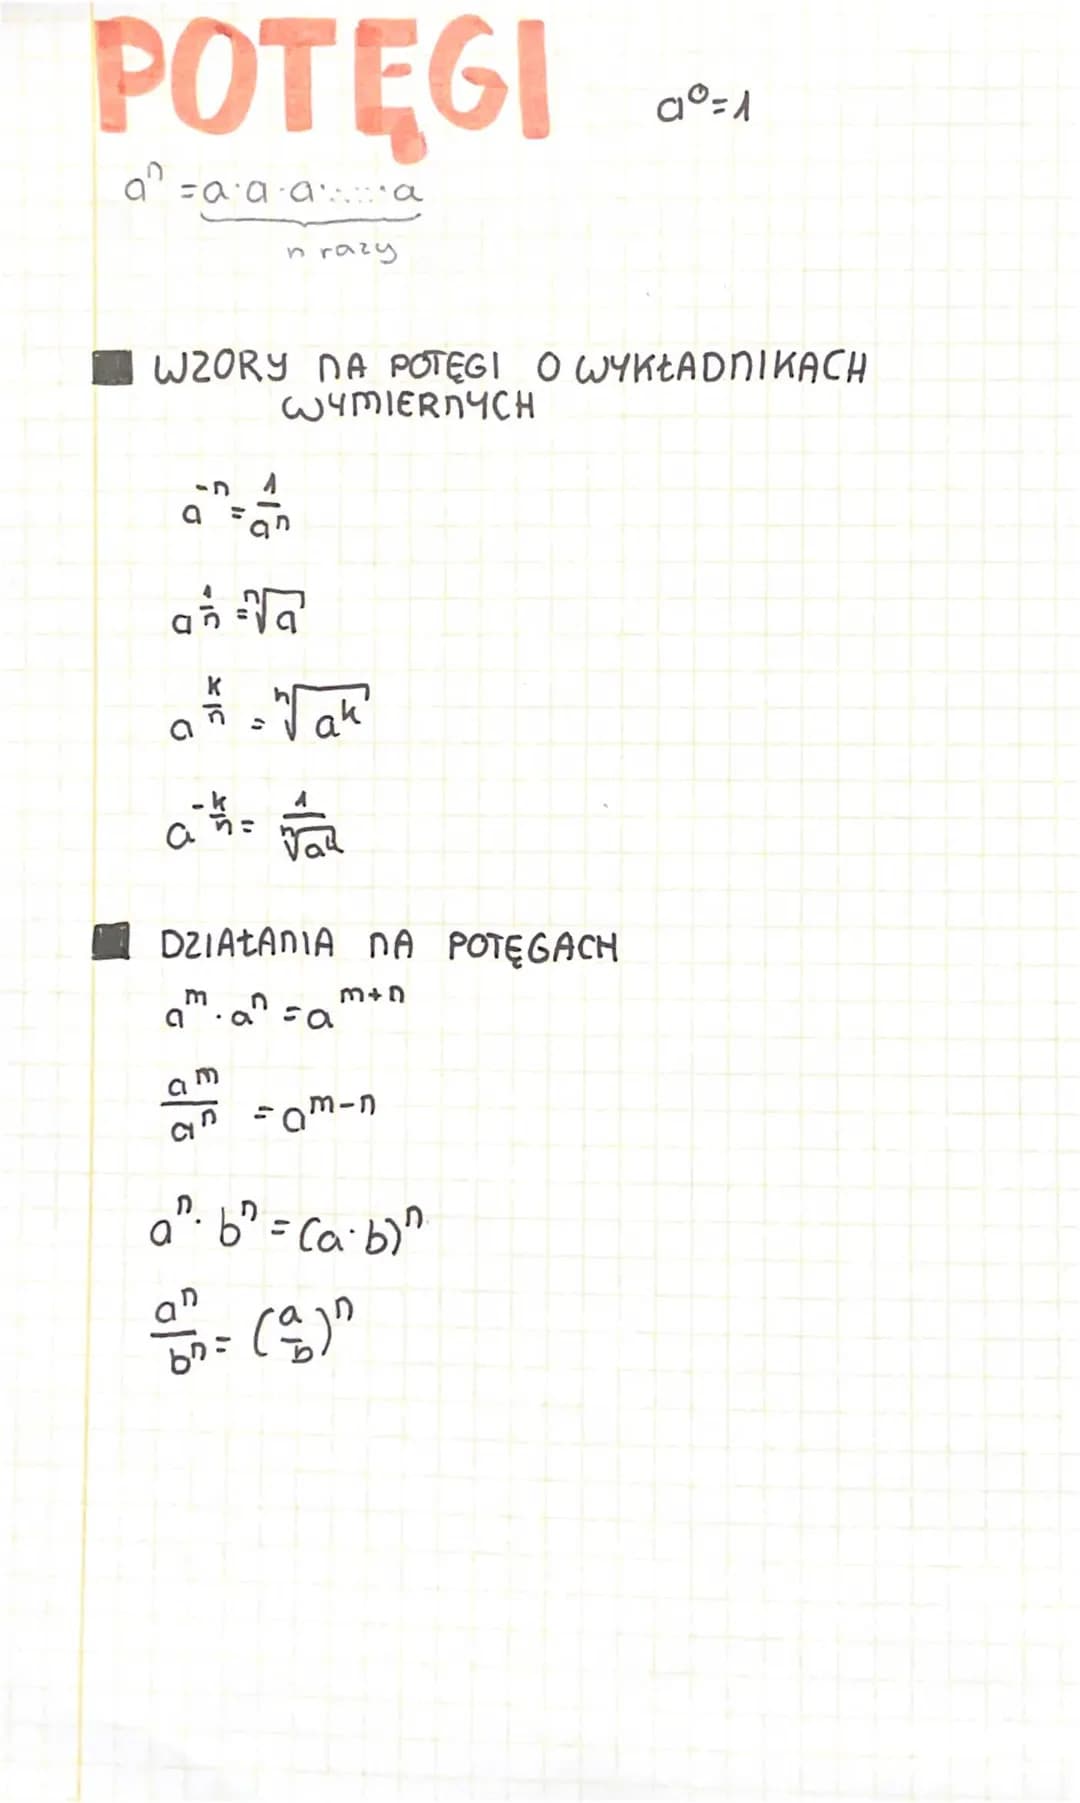 POTĘGI
a⁰=1
aⁿ =a·a·a·....·a
n razy
WZORY NA POTĘGI O WYKŁADNIKACH
WYMIERNYCH
a^-n = 1/a^n
a^(1/n) = ⁿ√a
a^(k/n) = ⁿ√(a^k)
a^(-k/n) = 1/ⁿ√(a^k)
DZIAŁANIA NA POTĘGACH
a^m · a^n = a^(m+n)
a^m/a^n = a^(m-n)
a^n · b^n = (a·b)^n
a^n/b^n = (a/b)^n